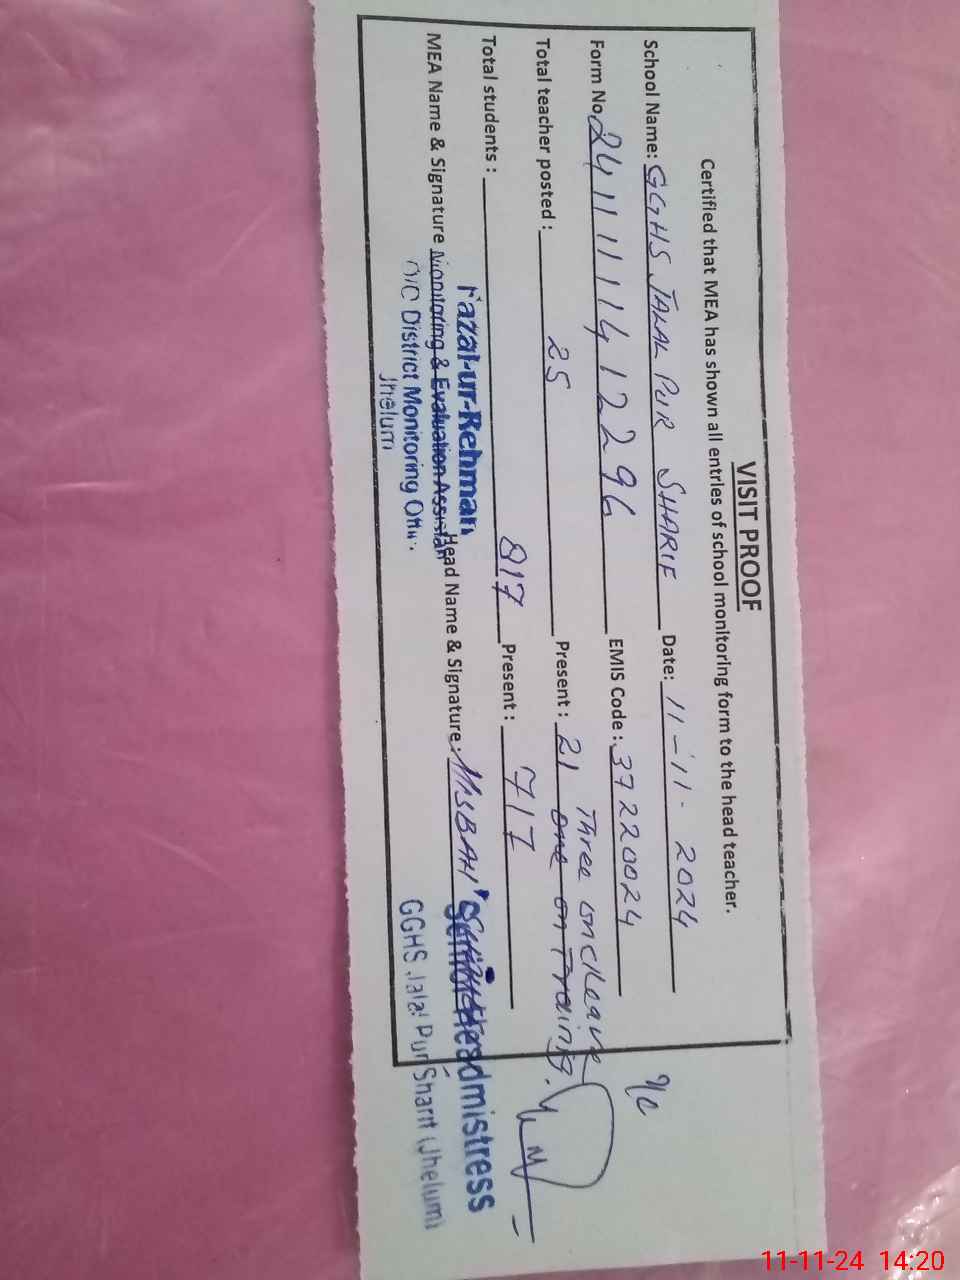 VISIT PROOF
Certified that MEA has shown all entries of school monitoring form to the head teacher.
School Name: GGHS JALAL PUR SHARIF Date: 11-11-2024
Form No. 2411111412296 EMIS Code: 37220024
Three on cLeave
Total teacher posted: 25 Present: 21 one on Training.
Total students: 817 Present: 717
MEA Name & Signature Head Name & Signature: MISBAH
Fazal-ur-Rehman
Monitoring & Evaluation Assistan
O/O District Monitoring Offi
Jhelum
Senior Headmistress
GGHS Jalal Pur Sharif (Jhelum)
11-11-24 14:20